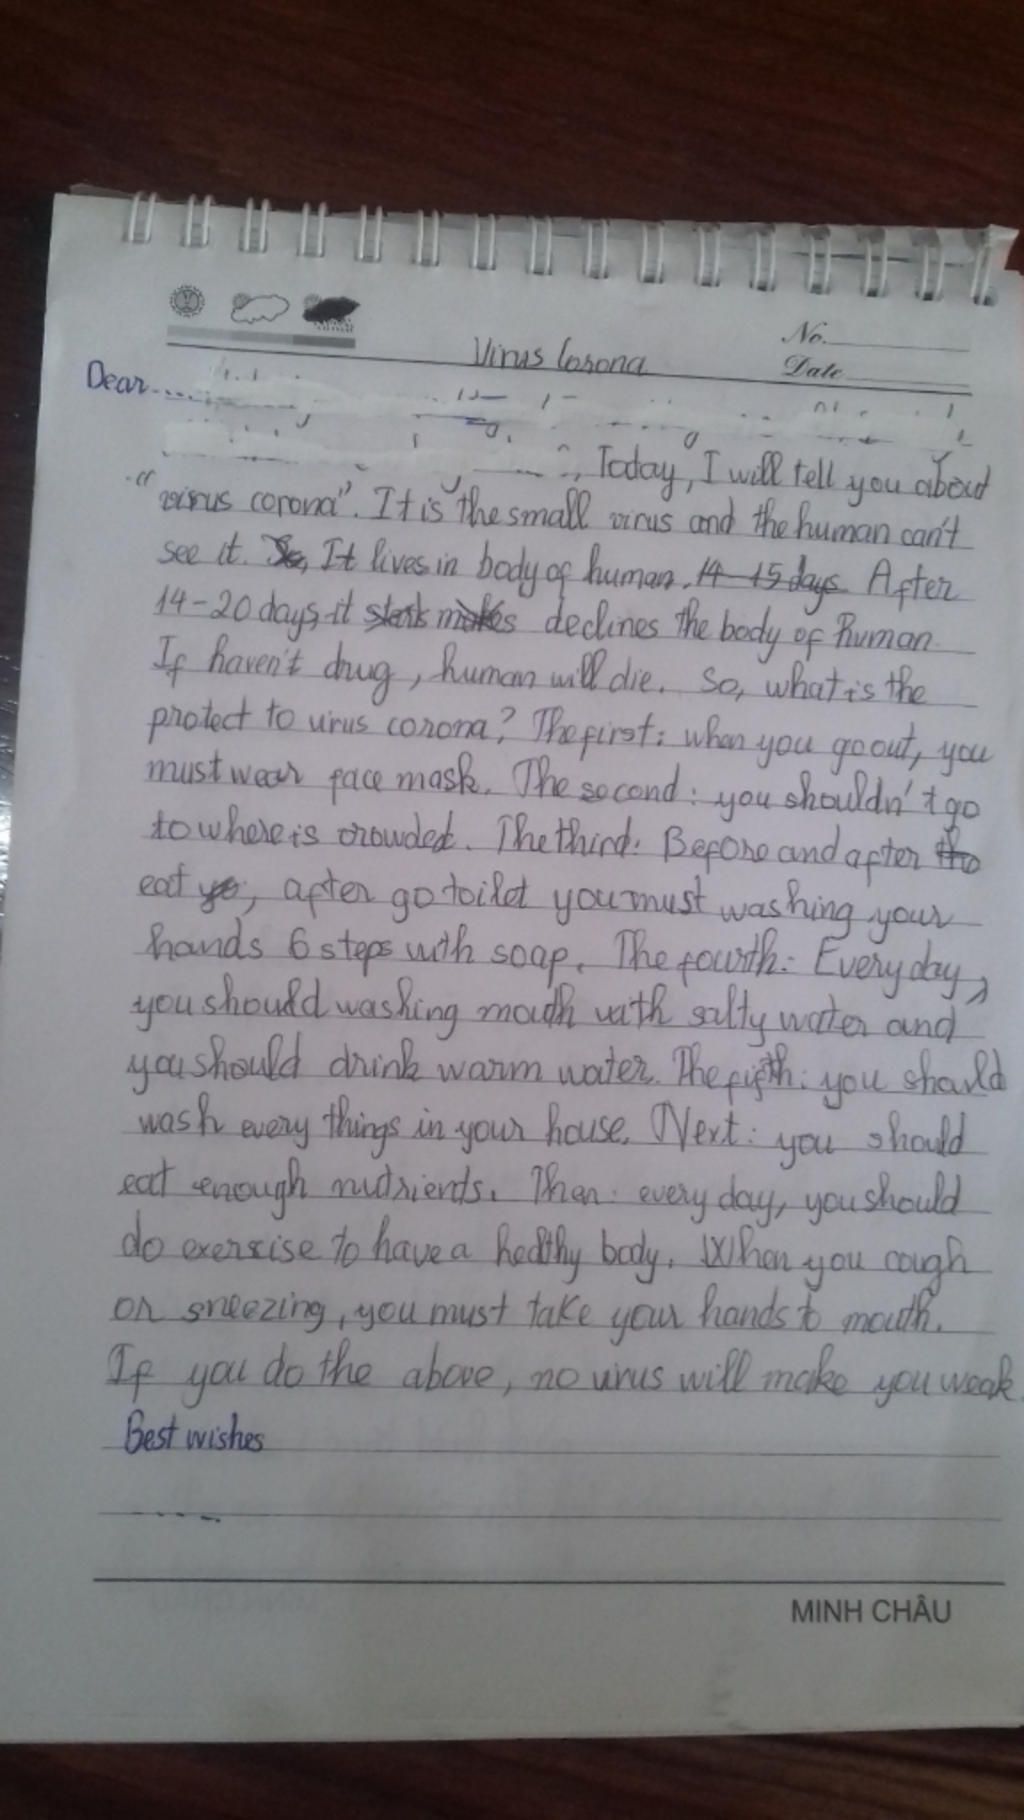 No.
Virus Corona
Date
Dear
Today, I will tell you about
"virus corona". It is the small virus and the human can't
see it. So, It lives in body of human. 14-15 days After
14-20 days, it starts makes declines the body of human.
If haven't drug, human will die. So, what is the
protect to virus corona? The first: when you go out, you
must wear face mask. The second: you shouldn't go
to where is crowded. The third: Before and after the
eat yo, after go toilet you must washing your
hands 6 steps with soap. The fourth: Every day,
you should washing mouth with salty water and
you should drink warm water. The fifth: you should
wash every things in your house. Next: you should
eat enough nutrients. Then: every day, you should
do exersise to have a healthy body. When you cough
or sneezing, you must take your hands to mouth.
If you do the above, no virus will make you weak.
Best wishes
MINH CHÂU